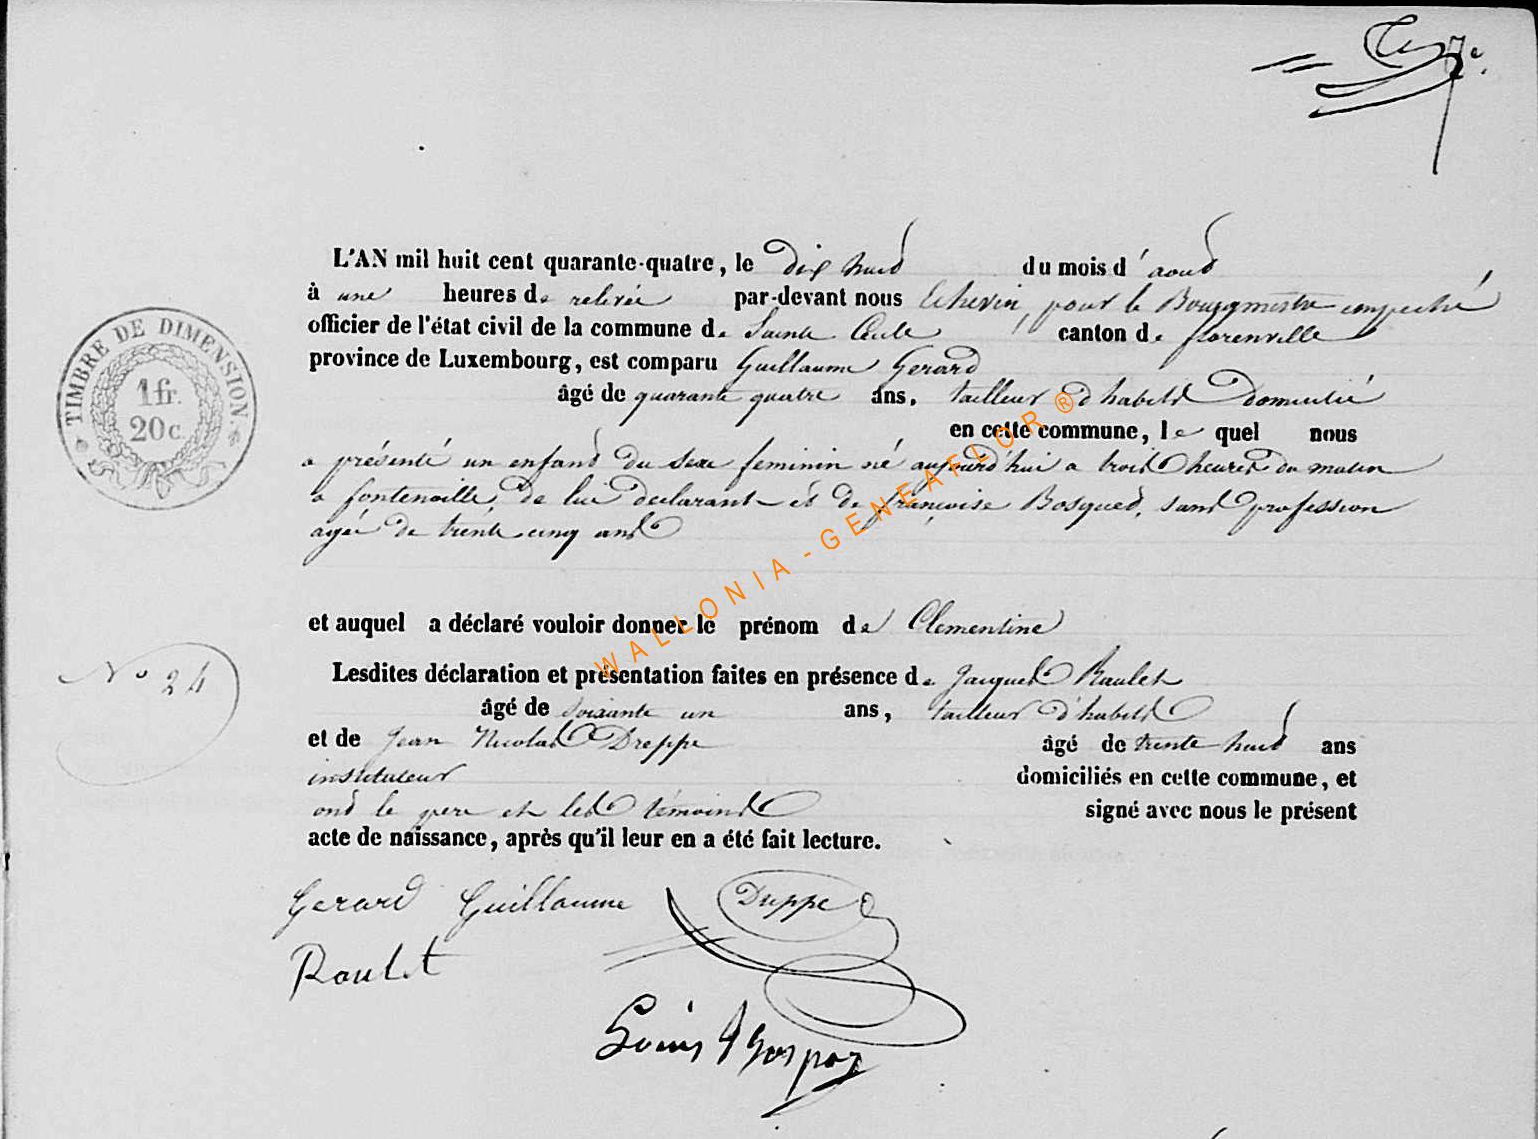 TIMBRE DE DIMENSION.
1 fr.
20 c.
L'AN mil huit cent quarante-quatre, le dix huit du mois d'aout
à une heures de relevée par-devant nous Echevin, pour le Bourgmestre empeché
officier de l'état civil de la commune de Sainte Cecile canton de florenville
province de Luxembourg, est comparu Guillaume Gerard
âgé de quarante quatre ans, tailleur d'habits Domicilié
en cette commune, le quel nous
a présenté un enfant du sexe feminin né aujourd'hui a trois heures du matin
a fontenoille, de lui declarant et de françoise Bosquet, sans profession
agée de trente cinq ans
et auquel a déclaré vouloir donner le prénom de Clementine
Lesdites déclaration et présentation faites en présence de Jacques Raulet
âgé de soixante un ans, tailleur d'habits
et de Jean Nicolas Dreppe âgé de trente huit ans
instituteur domiciliés en cette commune, et
ont le pere et les témoins signé avec nous le présent
acte de naissance, après qu'il leur en a été fait lecture.
N° 24
Gerard Guillaume Dreppe
Roulet
WALLONIA - GENEAFLOR ®